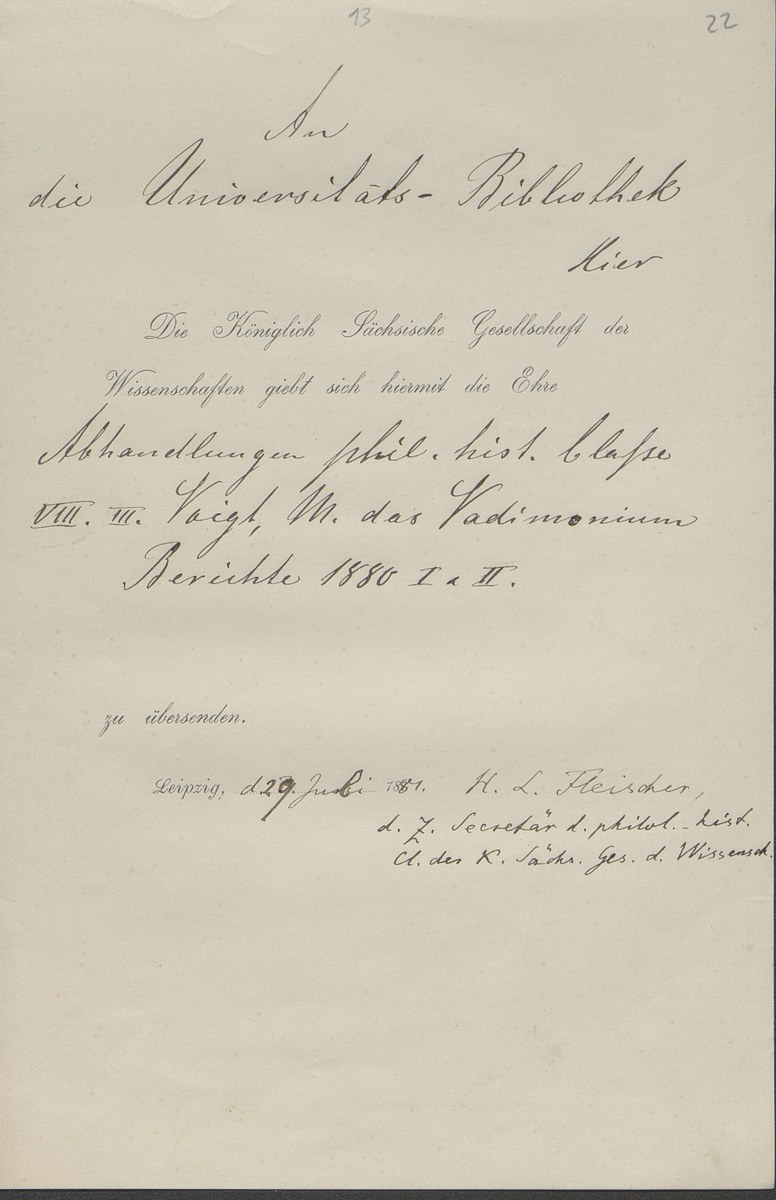 13 22
An
die Universitäts- Bibliothek
Hier
Die Königlich Sächsische Gesellschaft der
Wissenschaften giebt sich hiermit die Ehre
Abhandlungen phil. hist. Classe
VIII. III. Voigt, M. das Vadimonium
Berichte 1880 I u II.
zu übersenden.
Leipzig, d. 29. Juli 1881. H. L. Fleischer,
d. Z. Secretär d. philol.-hist.
Cl. der K. Sächs. Ges. d. Wissensch.